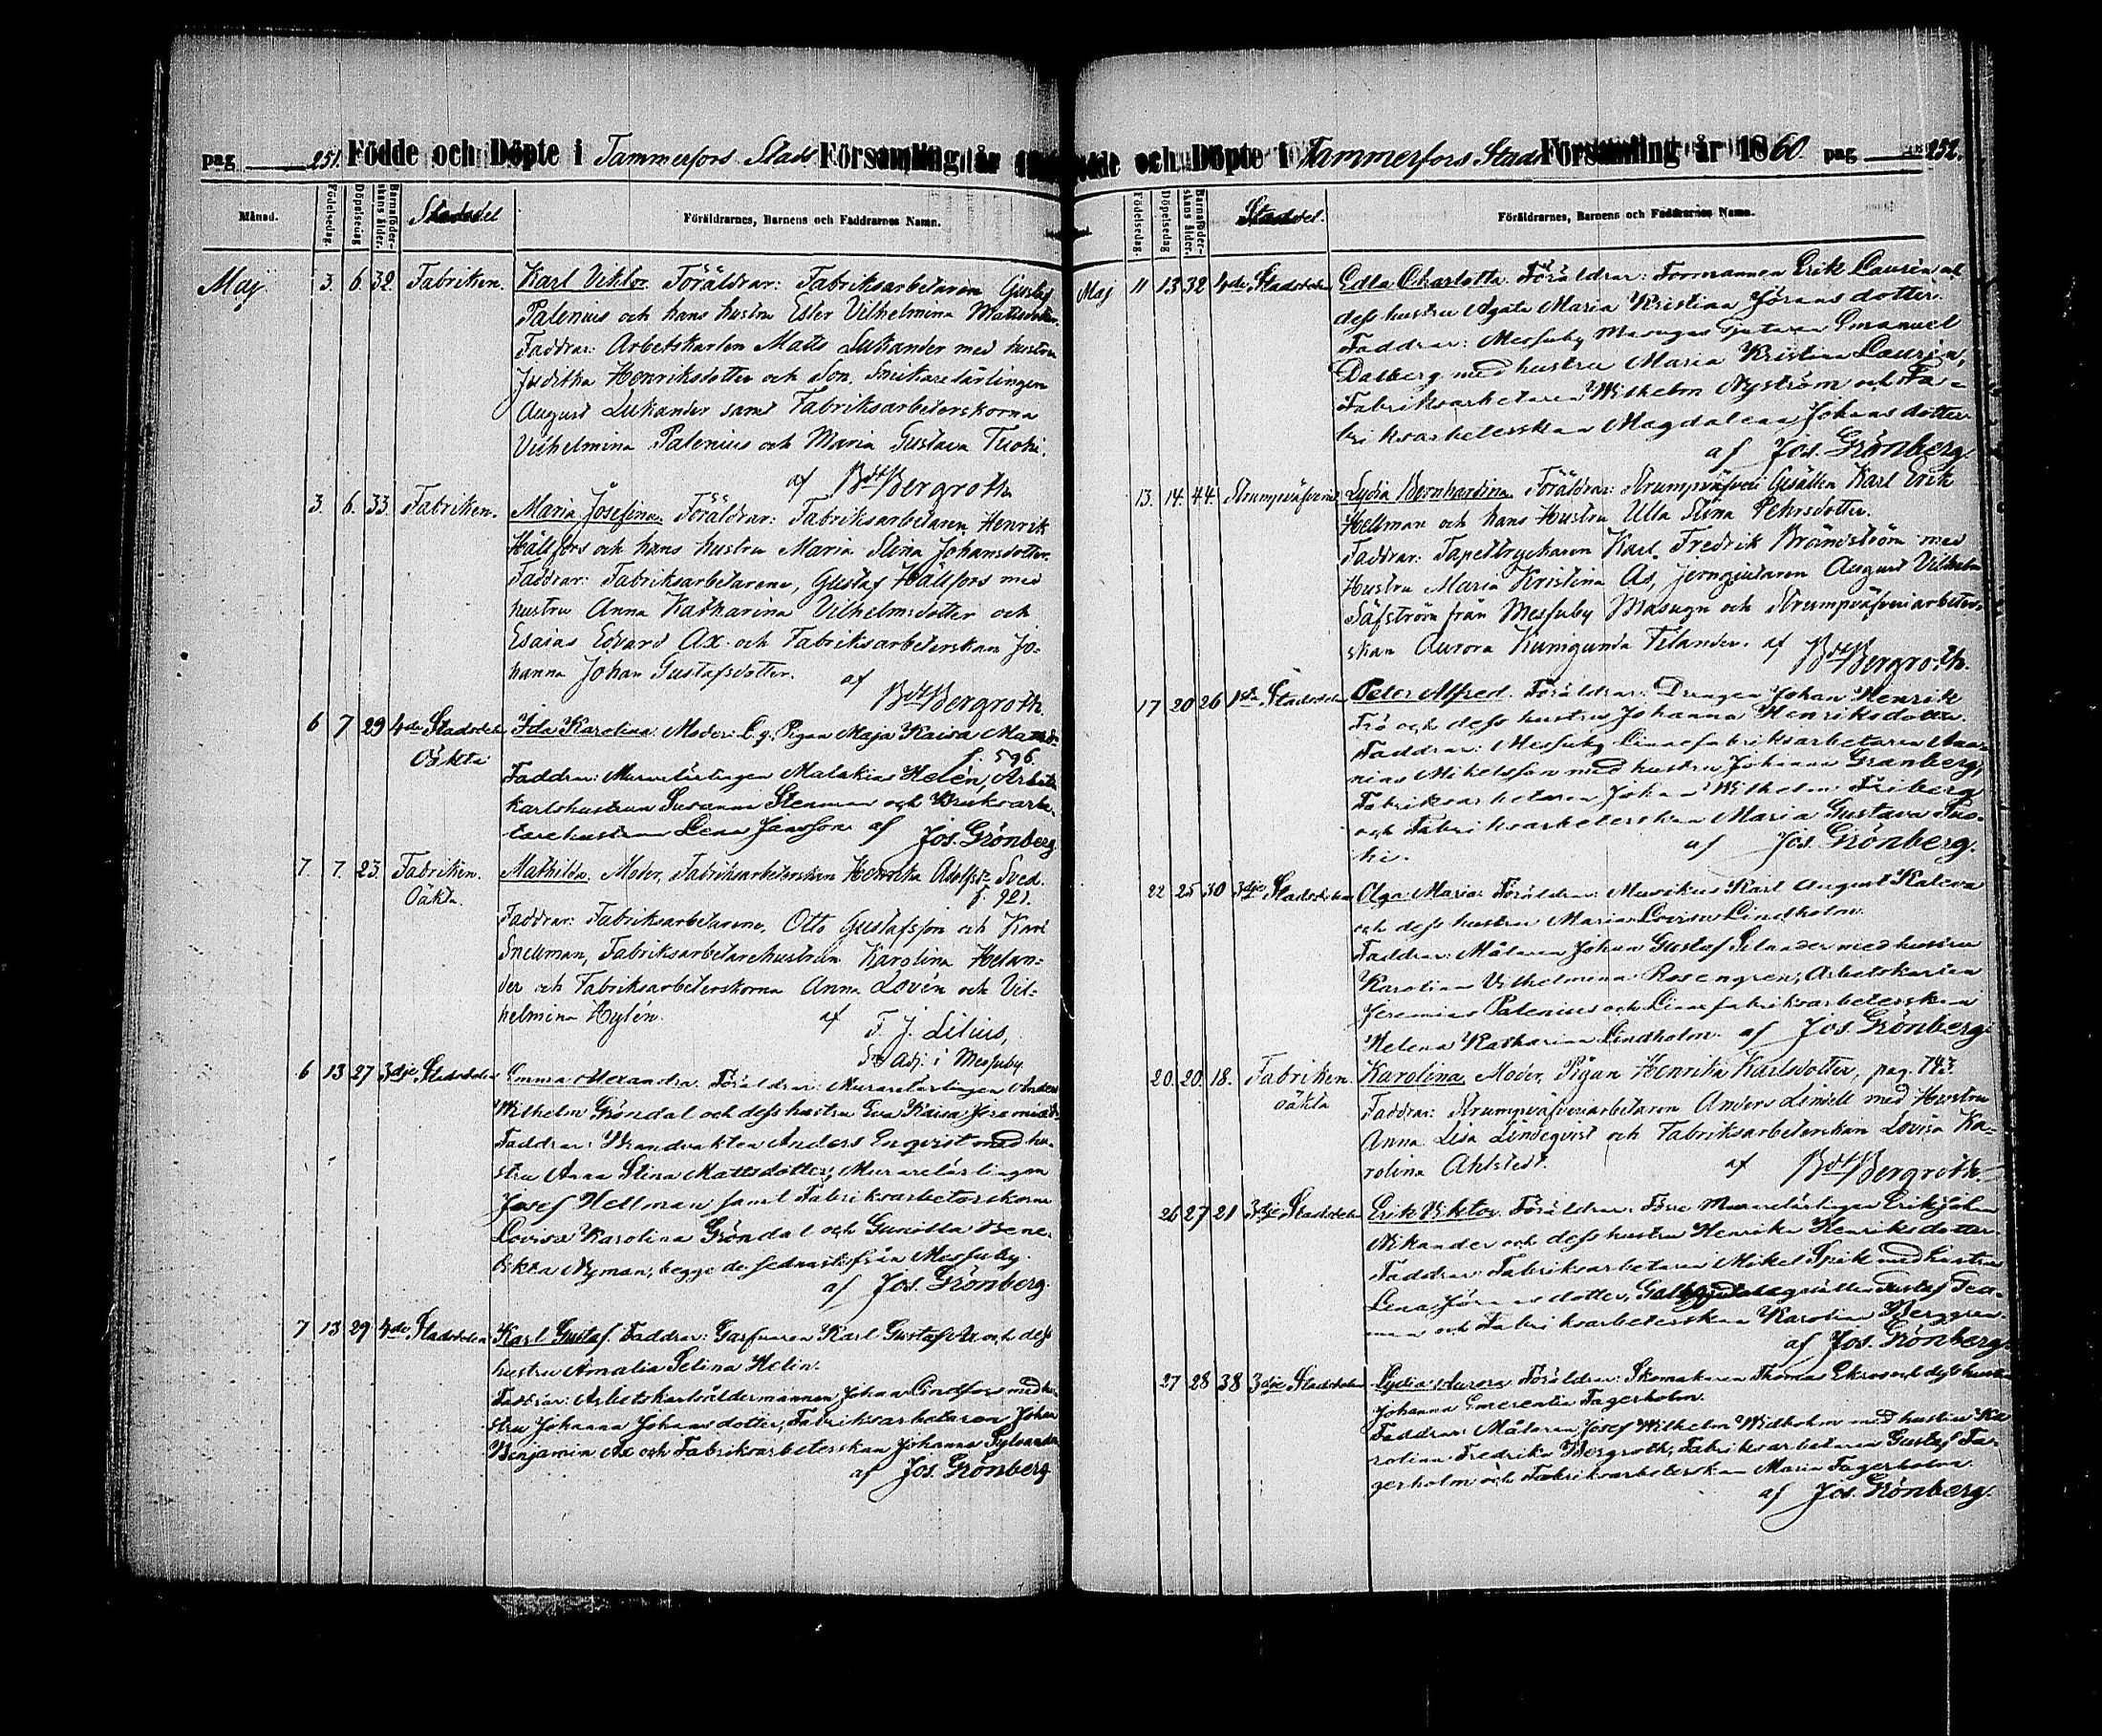 pag 251. Födde och Döpte i Tammerfors Stads Församling år
Månad. Födelsedag. Döpelsedag Barnaföderskans ålder. Stadsdel Föräldrarnes, Barnens och Faddrarnes Namn.
Maj 3. 6. 32. Fabriken. Karl Viktor. Föräldrar: Fabriksarbetaren Gustaf
Palenius och hans hustru Ester Vilhelmina Mattsdotter.
Faddrar: Arbetskarlen Matts Lukander med hustru
Juditha Henriksdotter och Son, Snickarelärlingen
August Lukander samt Fabriksarbeterskorna
Vilhelmina Palenius och Maria Gustava Tuohi.
af Bdt Bergroth.
3. 6. 33. Fabriken. Maria Josefina, Föräldrar: Fabriksarbetaren Henrik
Hällfors och hans hustru Maria Stina Johansdotter.
Faddrar: Fabriksarbetarene, Gustaf Hällfors med
hustru Anna Katharina Vilhelmsdotter och
Esaias Edvard Ax och Fabriksarbeterskan Jo-
hanna Johan Gustafsdotter. af
Bdt Bergroth.
6 7 29 4de Stadsdelen Ida Karolina. Moder: L. q. Pigan Maja Kaisa
Oäkta f. 596.
Faddrar: Murarelärlingen Malakias Helén, Arbets-
karlshustrun Susanna Stenman och Bruksarbe-
tarehustrun Lena Jansson af Jos. Grönberg
7. 7. 23. Fabriken. Mathilda. Moder, Fabriksarbeterskan Henrika Adolfsd. Sved.
Oäkta. f. 921.
Faddrar: Fabriksarbetarene, Otto Gustafsson och Karl
Snellman, Fabriksarbetarehustrun Karolina Helan-
der och Fabriksarbeterskorna Anna Lovén och Vil-
helmina Hylén. af F. J. Lilius,
Adj. i Messuby
6 13 27 3dje Stadsdelen Emma Alexandra. Föräldrar: Murarelärlingen Anders
Wilhelm Gröndal och dess hustru Eva Kaisa Jeremiasd.
Faddrar: Brandvakten Anders Enqvist med hu-
stru Anna Stina Mattsdotter, Murarelärlingen
Josef Hellman samt Fabriksarbeterskorna
Lovisa Karolina Gröndal och Gunilla Bene-
dikta Nyman, begge de sednaste från Messuby.
af Jos. Grönberg.
7 13 29 4de Stadsdelen Karl Gustaf. Faddrar: Garfvaren Karl Gustaf Ax och dess
hustru Amalia Selina Helin.
Faddrar: Arbetskarlsåldermannen Johan Lindfors med hu-
stru Johanna Johansdotter, Fabriksarbetaren Johan
Benjamin Ax och Fabriksarbeterskan Johanna Sylvander
af Jos. Grönberg
och Döpte i Tammerfors Stads Församling år 1860. pag 252.
Födelsedag. Döpelsedag Barnaföderskans ålder. Stadsdel. Föräldrarnes, Barnens och Faddrarnes Namn.
Maj 11 13 32 4de Stadsdelen Edla Charlotta. Föräldrar: Formannen Erik Laurén och
dess hustru Agata Maria Kristina Jöransdotter.
Faddrar: Messuby Masugns Gjutaren Emanuel
Dalberg med hustru Maria Kristina Laurén,
Fabriksarbetaren Wilhelm Nyström och Fa-
briksarbeterskan Magdalena Johansdotter
af Jos. Grönberg.
13. 14. 44. Strumpväfveriet Lydia Bernhardina. Föräldrar: Strumpväfveri Gesällen Karl Erik
Hellman och hans Hustru Ulla Stina Pehrsdotter.
Faddrar: Tapettryckaren Karl Fredrik Brändström med
Hustru Maria Kristina As, Jerngjutaren August Vilhelm
Säfström från Messuby Masugn och Strumpväfveriarbeter-
skan Aurora Kunigunda Tilander. af Bdt Bergroth.
17 20 26 1sta Stadsdelen Peter Alfred. Föräldrar: Drängen Johan Henrik
Frö och dess hustru Johanna Henriksdotter.
Faddrar: Messuby Linnefabriksarbetaren Ana-
nias Mikelsson med hustru Johanna Granberg,
Fabriksarbetaren Johan Wilhelm Friberg
och Fabriksarbeterskan Maria Gustava Tuo-
hi. af Jos. Grönberg.
22 25 30 3dje Stadsdelen Olga Maria. Föräldrar: Musikus Karl August Kaleva
och dess hustru Maria Lovisa Lindholm.
Faddrar: Målaren Johan Gustaf Selander med hustru
Karolina Vilhelmina Rosengren, Arbetskarlen
Jeremias Palenius och Linnefabriksarbeterskan
Helena Katharina Lindholm. af Jos. Grönberg
20. 20. 18. Fabriken. Karolina, Moder, Pigan Henrika Karlsdotter, pag. 743.
oäkta Faddrar: Strumpväfveriarbetaren Anders Lindell med Hustru
Anna Lisa Lindeqvist och Fabriksarbeterskan Lovisa Ka-
rolina Ahlstedt. af Bdt Bergroth.
26 27 21 3dje Stadsdelen Erik Viktor. Föräldrar: Förre Murarelärlingen Erik Johan
Nikander och dess hustru Henrika Henriksdotter.
Faddrar: Fabriksarbetaren Mikel Spik med hustru
Lena Jöransdotter, Gustaf
och Fabriksarbeterskan Karolina Berggren.
af Jos. Grönberg.
27 28 38 3dje Stadsdelen Lydia Aurora. Föräldrar: Skomakaren Thomas Ekroos och dess hustru
Johanna Emerentia Fagerholm.
Faddrar: Målaren Josef Wilhelm Widholm med hustru Ka-
rolina Fredrika Bergroth, Fabriksarbetaren Gustaf Fa-
gerholm och Fabriksarbeterskan Maria Fagerholm.
af Jos. Grönberg.